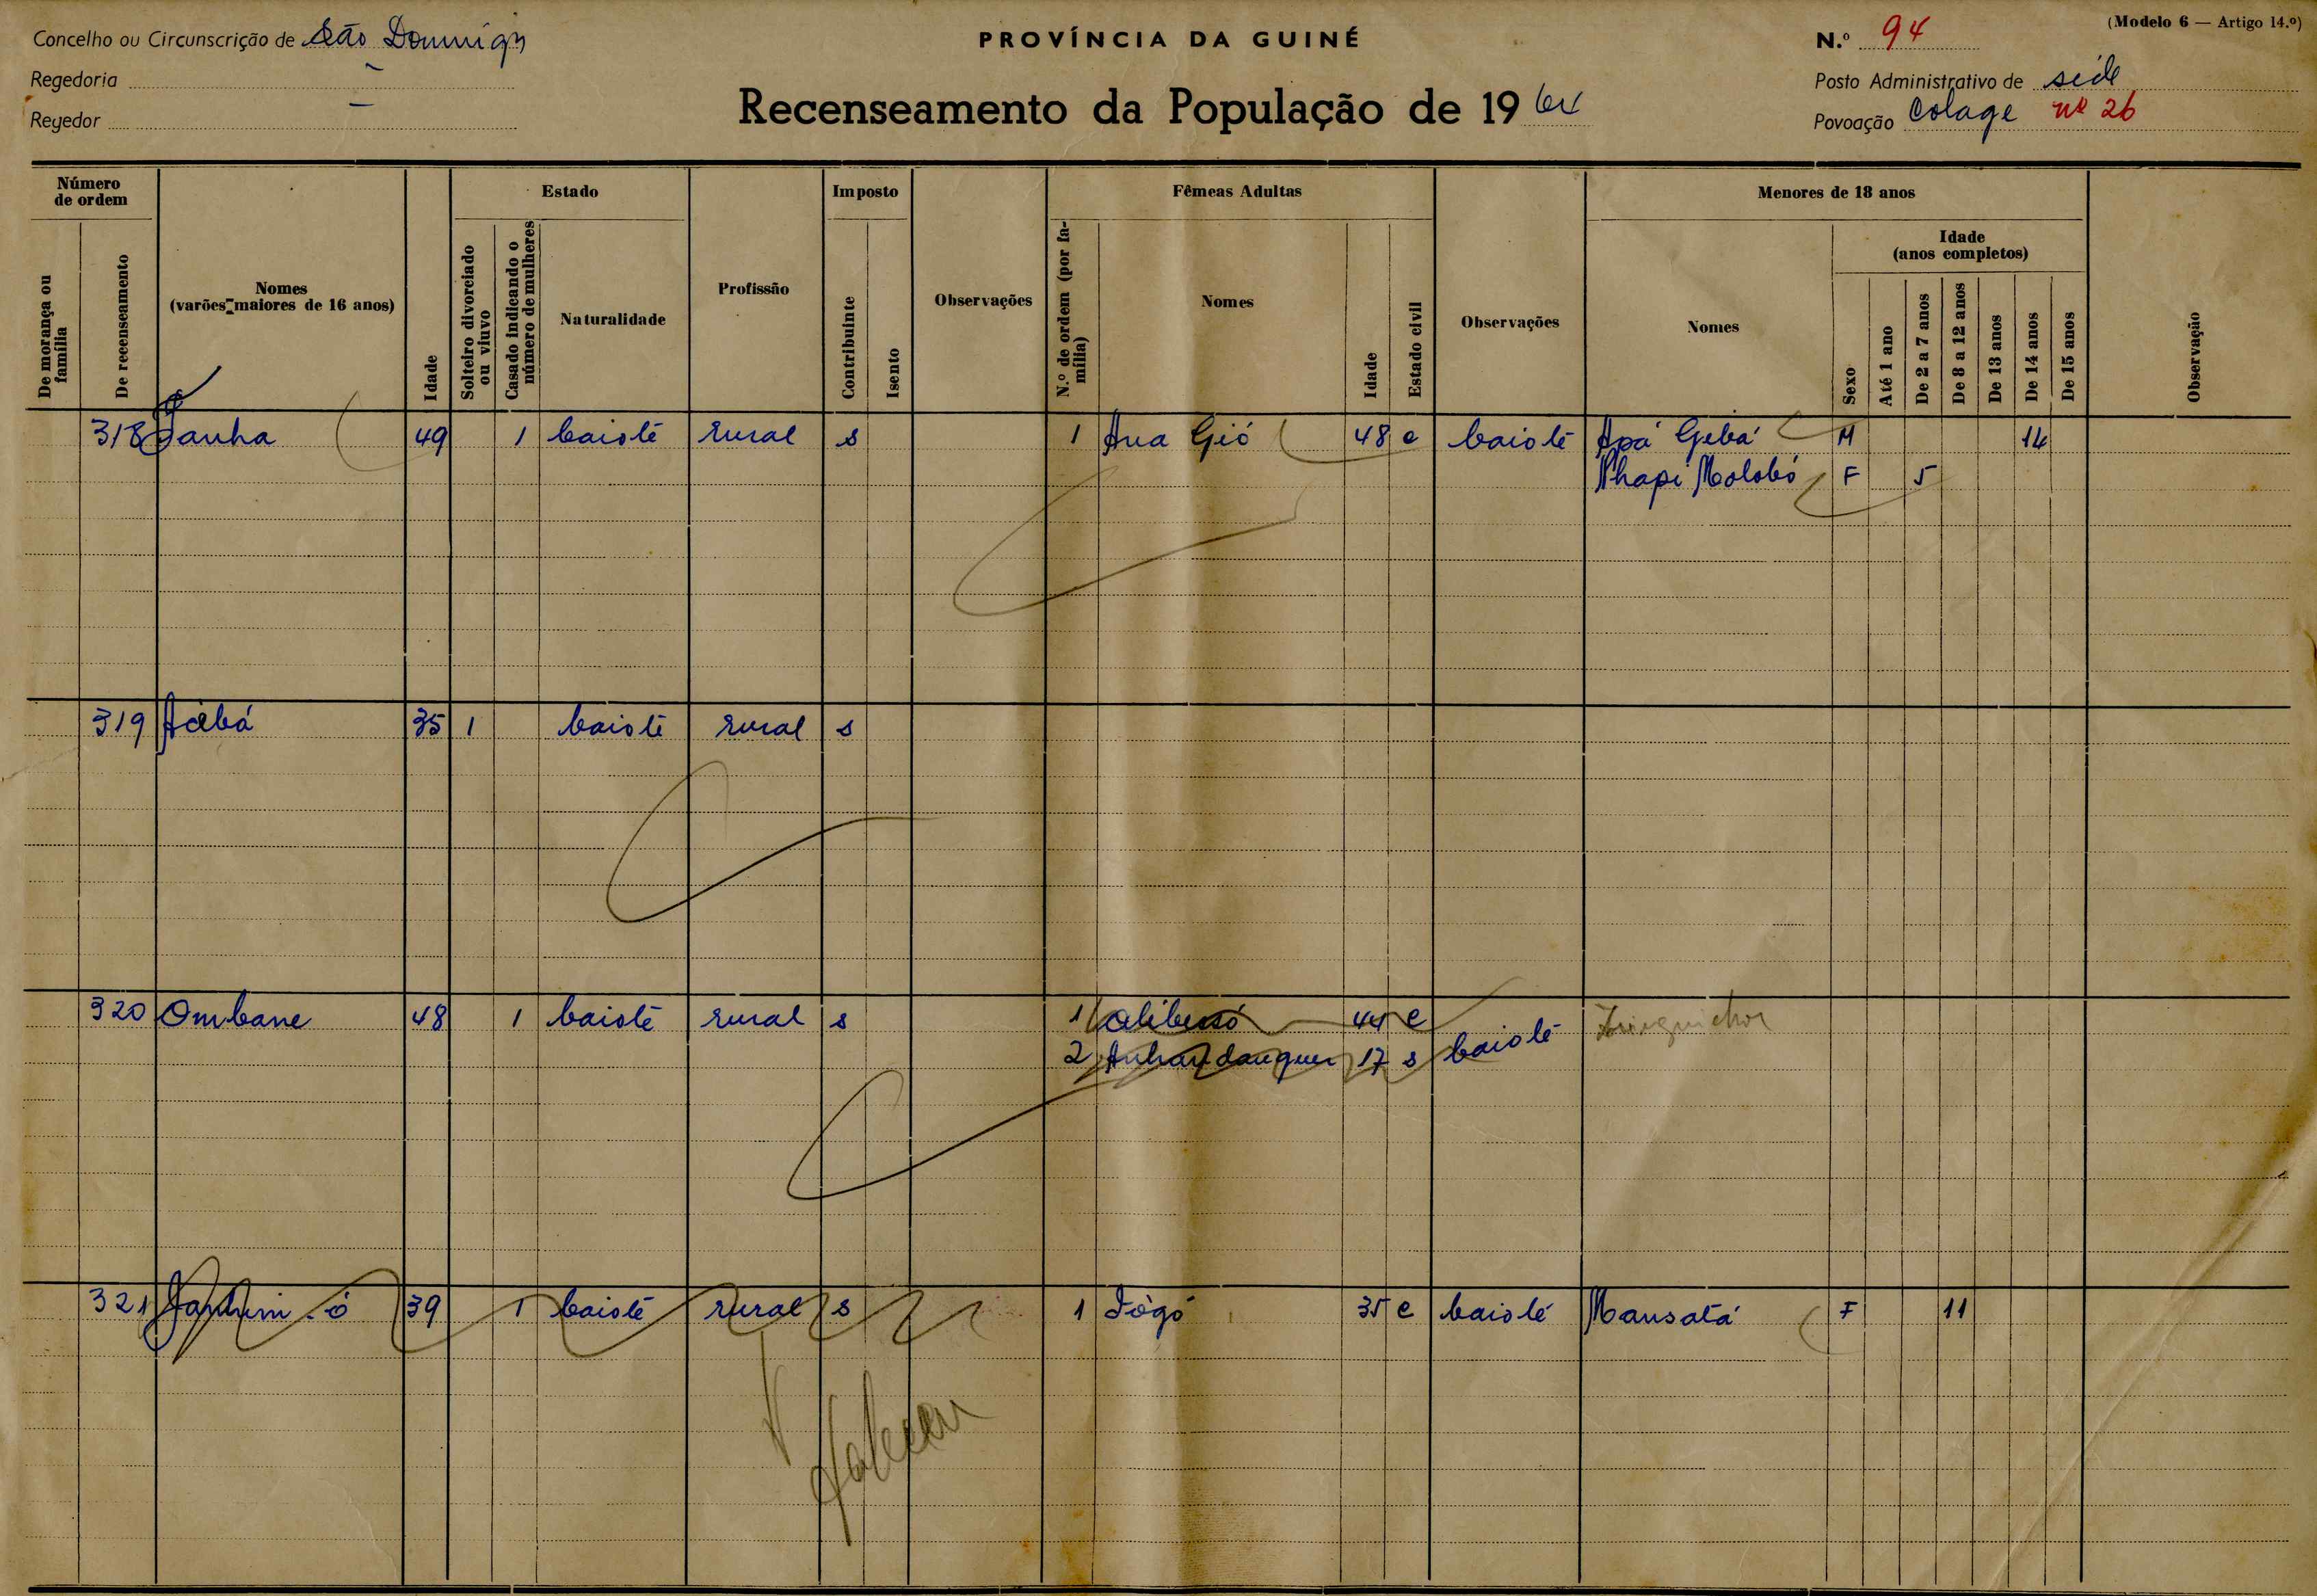 (Modelo 6 — Artigo 14.º)
Concelho ou Circunscrição de São Domingos
PROVÍNCIA DA GUINÉ
N.º 94
Regedoria —
Posto Administrativo de sede
Regedor —
Recenseamento da População de 1964
Povoação Colage nº 26
Número de ordem
De morança ou família
De recenseamento
Nomes (varões maiores de 16 anos)
Idade
Estado
Solteiro divorciado ou viuvo
Casado indicando o número de mulheres
Naturalidade
Profissão
Imposto
Contribuinte
Isento
Observações
Fêmeas Adultas
N.º de ordem (por família)
Nomes
Idade
Estado civil
Observações
Menores de 18 anos
Nomes
Idade (anos completos)
Sexo
Até 1 ano
De 2 a 7 anos
De 8 a 12 anos
De 13 anos
De 14 anos
De 15 anos
Observação
318 Sanha 49 1 baiote rural s 1 Ana Gió 48 c baiote Apá Gebá M 14
Nhapi Molobó F 5
319 35 1 baiote rural s
320 Ombane 48 1 baiote rural s 1 44 c
2 17 s baiote
321 39 1 baiote rural s 1 35 c baiote Mansatá F 11
Faleceu